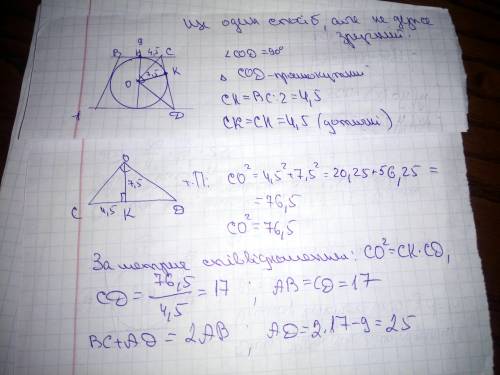 Ще один спосіб, але не дуже
зручний.
9
B H 4,5 C
7,5 K
O
A D
∠COD=90°
Δ COD-прямокутний
CH=BC:2=4,5
CK=CH=4,5 (дотичні)
O
7,5
C 4,5 K D
т.П.: CO²=4,5²+7,5²=20,25+56,25=
=76,5
CO²=76,5
За метричн співвідношенням: CO²=CK·CD,
CD=76,5/4,5=17 ; AB=CD=17
BC+AD=2AB ; AD=2·17-9=25